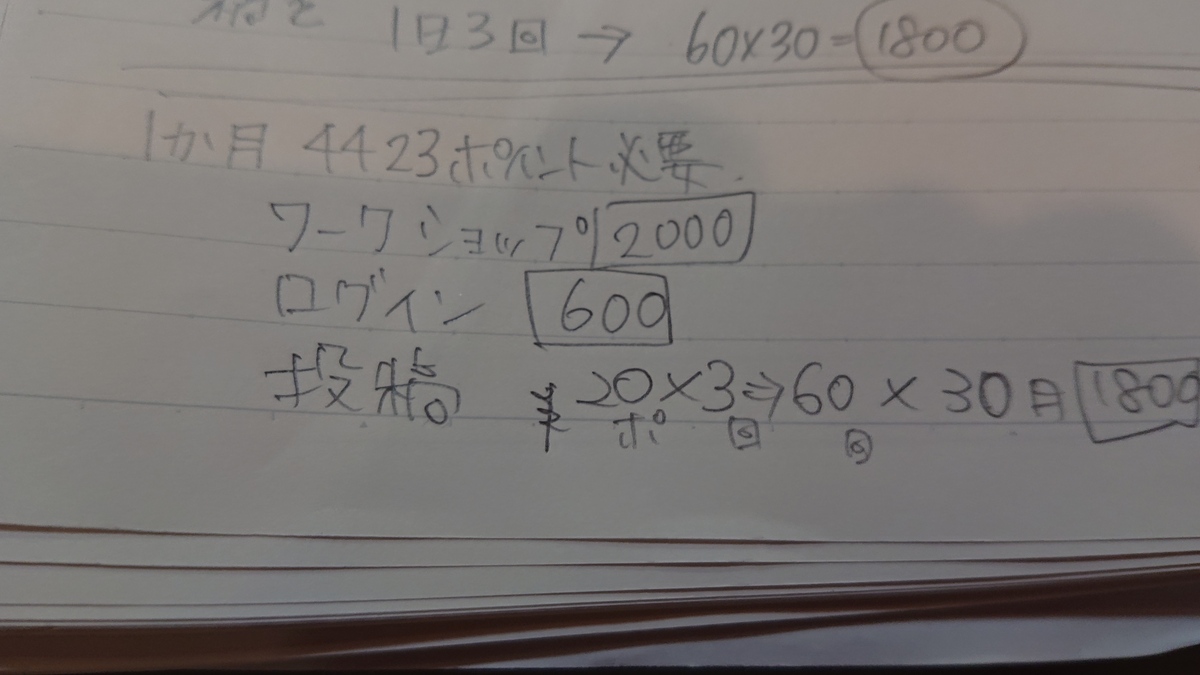 1日3回 → 60×30=1800
1か月 4423ポイント必要.
ワークショップ 2000
ログイン 600
投稿 20×3⇒60 × 30日 1800
ポ 回 回